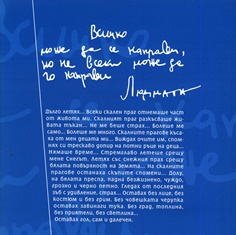 Всичко
може да се направи,
но не всеки може да
го направи
Людмила
Дълго летях... Всеки скален праг отнемаше част
от живота ми. Скалният праг разкъсваше жи-
вата тъкан... Не ме беше страх... Болеше ме
само... Болеше ме много. Скалните прагове къса-
ха от мен децата ми... Виждах очите им, спом-
ням си трескаво допир на потни ръце на деца...
Нямаше време... Стремглаво летеше срещу
мене Снегът. Летях със снежния прах срещу
бялата повърхност на Земята... На скалните
прагове останаха скъпите спомени... Долу,
на бялата преспа, падна безжизнено, чуждо,
грозно и черно петно. Гледах от последния
зъб с удивление, страх... Оставах без лице, без
костюм и без грим. Без човешката черупка
оставах завинаги тука. Без град, топлина,
без приятели, без светлина...
Оставах гол, сам и далечен.